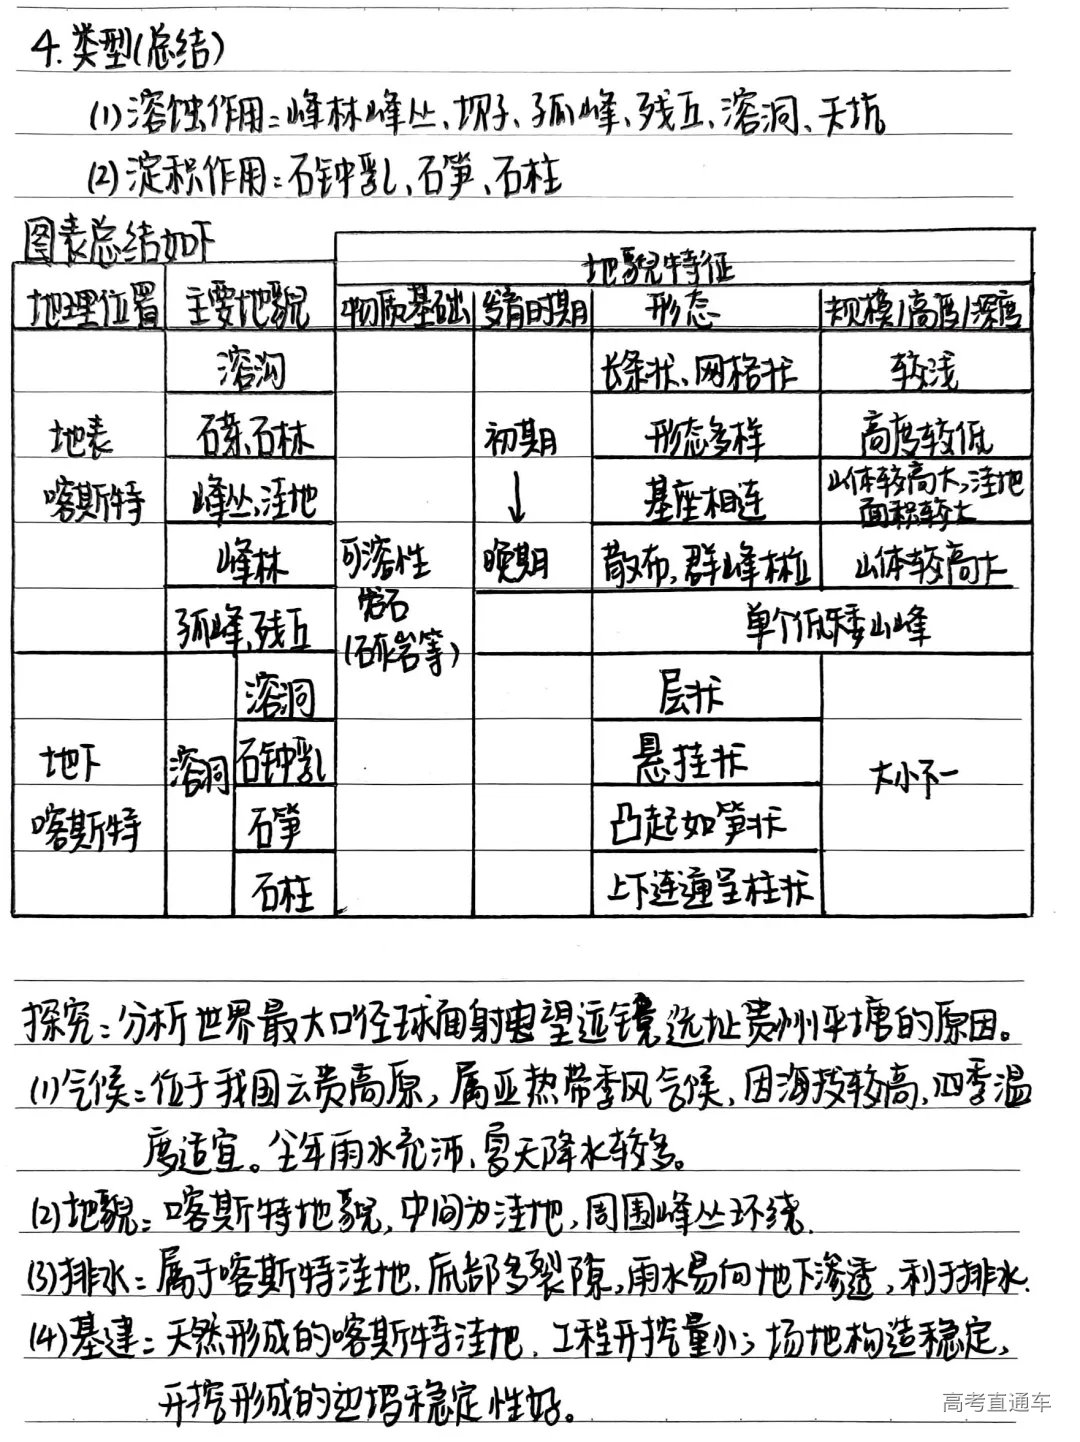 4.类型(总结)
(1)溶蚀作用:峰林峰丛、坝子、孤峰、残丘、溶洞、天坑
(2)淀积作用:石钟乳、石笋、石柱
图表总结如下
地貌特征
地理位置 主要地貌 物质基础 发育时期 形态 规模/高度/深度
溶沟 长条状、网格状 较浅
地表 石芽、石林 初期 形态多样 高度较低
喀斯特 峰丛、洼地 ↓ 基座相连 山体较高大,洼地
面积较大
峰林 可溶性 晚期 散布,群峰林立 山体较高大
孤峰、残丘 岩石 单个低矮山峰
(石灰岩等)
溶洞 层状
地下 溶洞 石钟乳 悬挂状 大小不一
喀斯特 石笋 凸起如笋状
石柱 上下连通呈柱状
探究:分析世界最大口径球面射电望远镜选址贵州平塘的原因。
(1)气候:位于我国云贵高原,属亚热带季风气候,因海拔较高,四季温
度适宜。全年雨水充沛,夏天降水较多。
(2)地貌:喀斯特地貌,中间为洼地,周围峰丛环绕.
(3)排水:属于喀斯特洼地,底部多裂隙,雨水易向地下渗透,利于排水.
(4)基建:天然形成的喀斯特洼地,工程开挖量小;场地构造稳定,
开挖形成的边塌稳定性好。
高考直通车